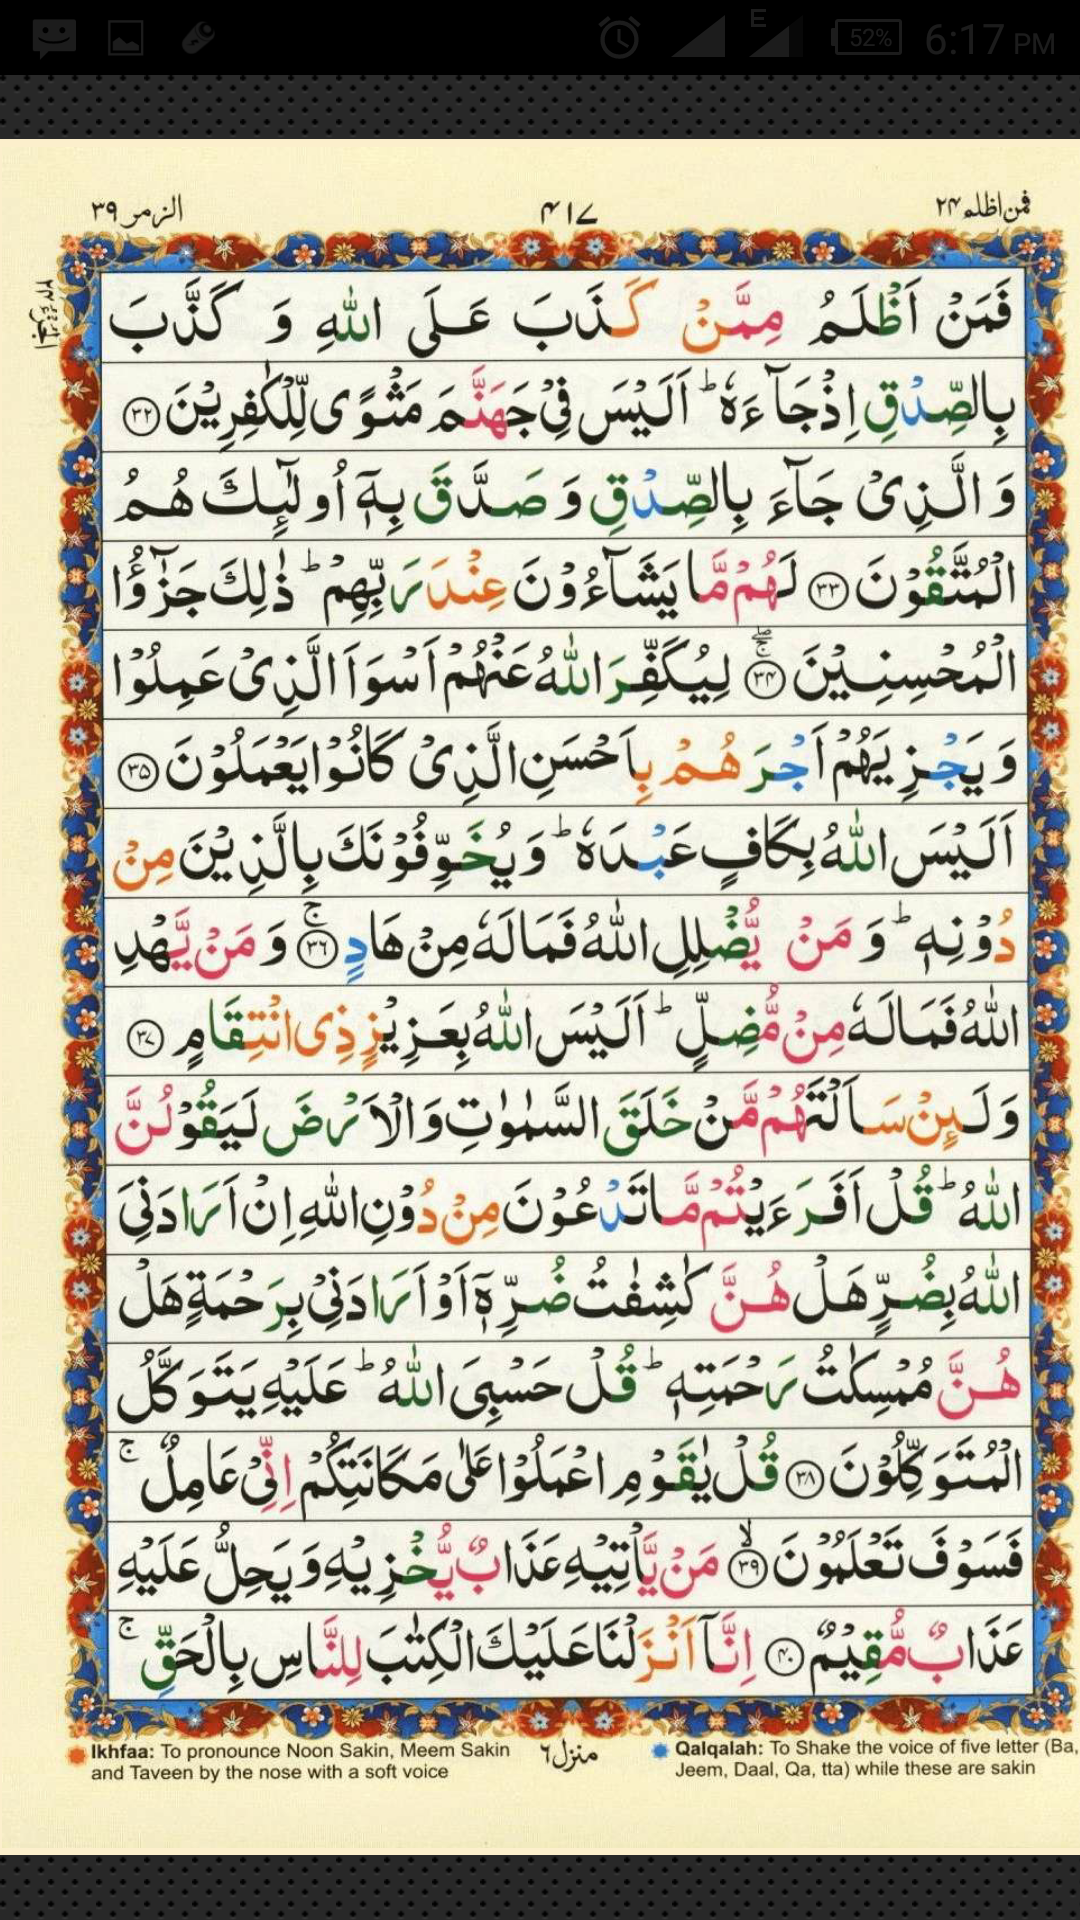 E 52% 6:17 PM
فمن اظلم ۲۴ ۴۱۷ الزمر ۳۹
فَمَنْ اَظْلَمُ مِمَّنْ كَذَبَ عَلَى اللّٰهِ وَ كَذَّبَ
بِالصِّدْقِ اِذْ جَآءَهٗ ؕ اَلَيْسَ فِيْ جَهَنَّمَ مَثْوًى لِّلْكٰفِرِيْنَ ﴿۳۲﴾
وَ الَّذِيْ جَآءَ بِالصِّدْقِ وَ صَدَّقَ بِهٖۤ اُولٰٓئِكَ هُمُ
الْمُتَّقُوْنَ ﴿۳۳﴾ لَهُمْ مَّا يَشَآءُوْنَ عِنْدَ رَبِّهِمْ ؕ ذٰلِكَ جَزٰٓؤُا
الْمُحْسِنِيْنَ ﴿۳۴﴾ۚۖ لِيُكَفِّرَ اللّٰهُ عَنْهُمْ اَسْوَاَ الَّذِيْ عَمِلُوْا
وَ يَجْزِيَهُمْ اَجْرَهُمْ بِاَحْسَنِ الَّذِيْ كَانُوْا يَعْمَلُوْنَ ﴿۳۵﴾
اَلَيْسَ اللّٰهُ بِكَافٍ عَبْدَهٗ ؕ وَ يُخَوِّفُوْنَكَ بِالَّذِيْنَ مِنْ
دُوْنِهٖ ؕ وَ مَنْ يُّضْلِلِ اللّٰهُ فَمَا لَهٗ مِنْ هَادٍ ﴿۳۶﴾ۚ وَ مَنْ يَّهْدِ
اللّٰهُ فَمَا لَهٗ مِنْ مُّضِلٍّ ؕ اَلَيْسَ اللّٰهُ بِعَزِيْزٍ ذِي انْتِقَامٍ ﴿۳۷﴾
وَ لَىِٕنْ سَاَلْتَهُمْ مَّنْ خَلَقَ السَّمٰوٰتِ وَ الْاَرْضَ لَيَقُوْلُنَّ
اللّٰهُ ؕ قُلْ اَفَرَءَيْتُمْ مَّا تَدْعُوْنَ مِنْ دُوْنِ اللّٰهِ اِنْ اَرَادَنِيَ
اللّٰهُ بِضُرٍّ هَلْ هُنَّ كٰشِفٰتُ ضُرِّهٖۤ اَوْ اَرَادَنِيْ بِرَحْمَةٍ هَلْ
هُنَّ مُمْسِكٰتُ رَحْمَتِهٖ ؕ قُلْ حَسْبِيَ اللّٰهُ ؕ عَلَيْهِ يَتَوَكَّلُ
الْمُتَوَكِّلُوْنَ ﴿۳۸﴾ قُلْ يٰقَوْمِ اعْمَلُوْا عَلٰى مَكَانَتِكُمْ اِنِّيْ عَامِلٌ ۚ
فَسَوْفَ تَعْلَمُوْنَ ﴿۳۹﴾ۙ مَنْ يَّاْتِيْهِ عَذَابٌ يُّخْزِيْهِ وَ يَحِلُّ عَلَيْهِ
عَذَابٌ مُّقِيْمٌ ﴿۴۰﴾ اِنَّاۤ اَنْزَلْنَا عَلَيْكَ الْكِتٰبَ لِلنَّاسِ بِالْحَقِّ ۚ
Ikhfaa: To pronounce Noon Sakin, Meem Sakin
and Taveen by the nose with a soft voice
منزل ٦
Qalqalah: To Shake the voice of five letter (Ba,
Jeem, Daal, Qa, tta) while these are sakin